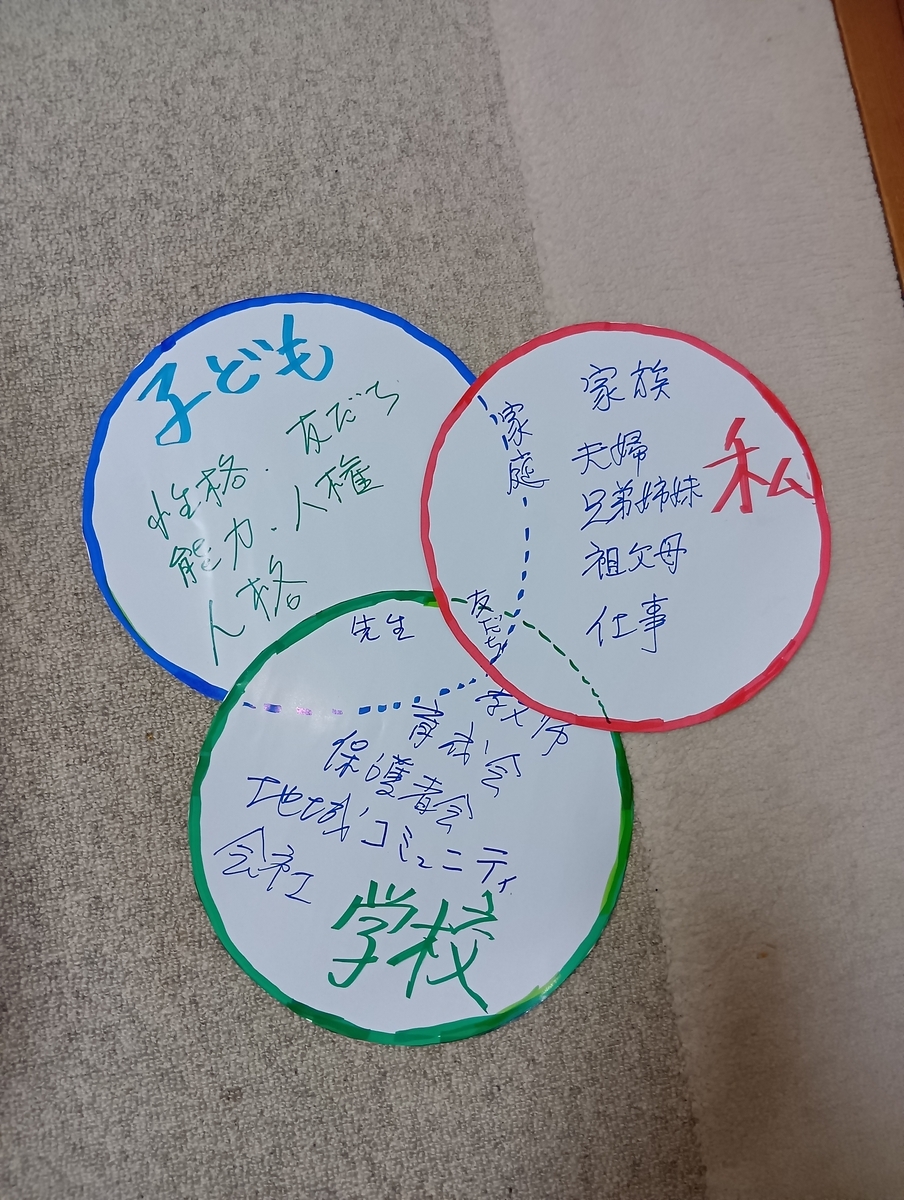 子ども
性格・友だち
能力・人権
人格
家庭
家族
夫婦
兄弟姉妹
祖父母
仕事
私
先生
友だち
教師
育成会
保護者会
地域コミュニティ
会社
学校